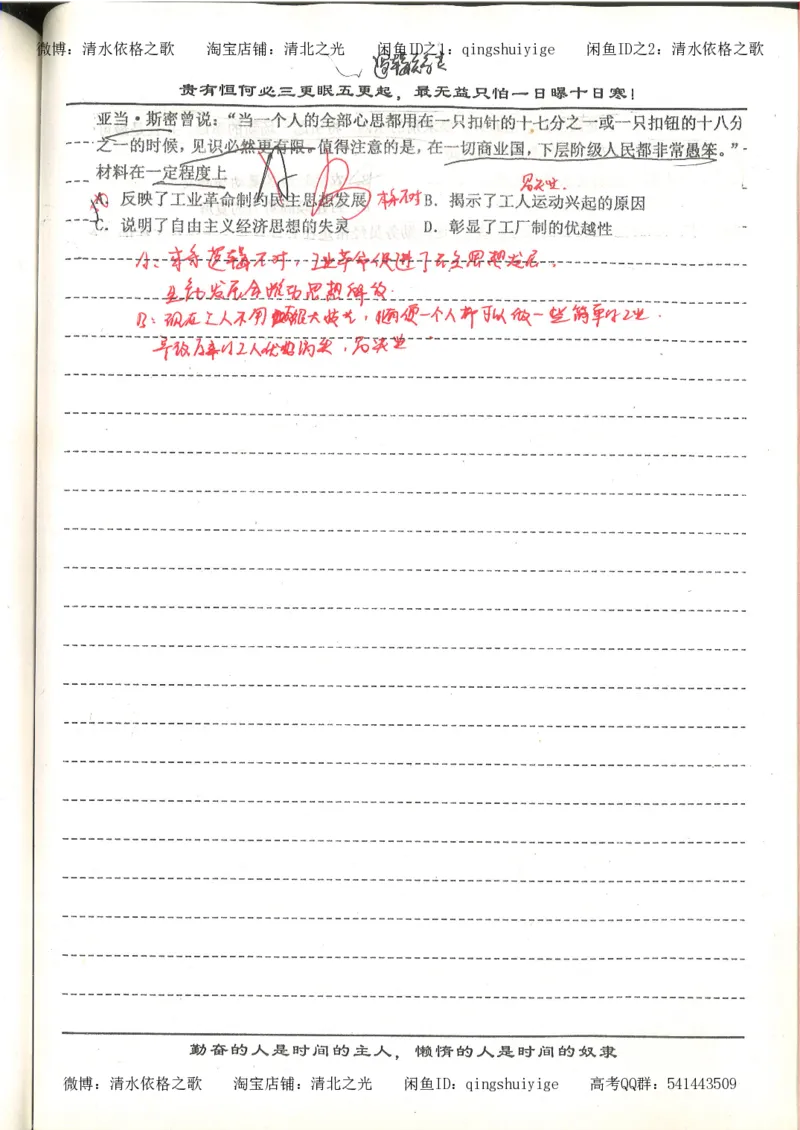 微博：清水依格之歌 淘宝店铺：清北之光 闲鱼ID之1：qingshuiyige 闲鱼ID之2：清水依格之歌
逻辑
贵有恒何必三更眠五更起，最无益只怕一日曝十日寒！
亚当·斯密曾说：“当一个人的全部心思都用在一只扣针的十七分之一或一只扣钮的十八分
之一的时候，见识必然更有限。值得注意的是，在一切商业国，下层阶级人民都非常愚笨。”
材料在一定程度上
A B
A．反映了工业革命制约民主思想发展 B．揭示了工人运动兴起的原因
C．说明了自由主义经济思想的失灵 D．彰显了工厂制的优越性
A：史实逻辑不对，工业革命促进了民主思想发展．
会推动思想解放．
B：现在工人不用 很大技术，随便一个人都可以做一些简单的工业．
导致原来的工人优势消失，为失业
勤奋的人是时间的主人，懒惰的人是时间的奴隶
微博：清水依格之歌 淘宝店铺：清北之光 闲鱼ID：qingshuiyige 高考QQ群：541443509